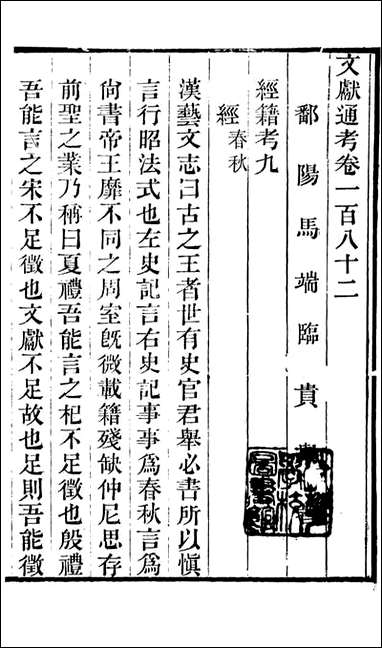 文獻通考卷一百八十二
鄱陽馬端臨貴與
經籍考九
經 春秋
漢藝文志曰古之王者世有史官君舉必書所以愼
言行昭法式也左史記言右史記事事爲春秋言爲
尙書帝王靡不同之周室旣微載籍殘缺仲尼思存
前聖之業乃稱曰夏禮吾能言之杞不足徵也殷禮
吾能言之宋不足徵也文獻不足故也足則吾能徵